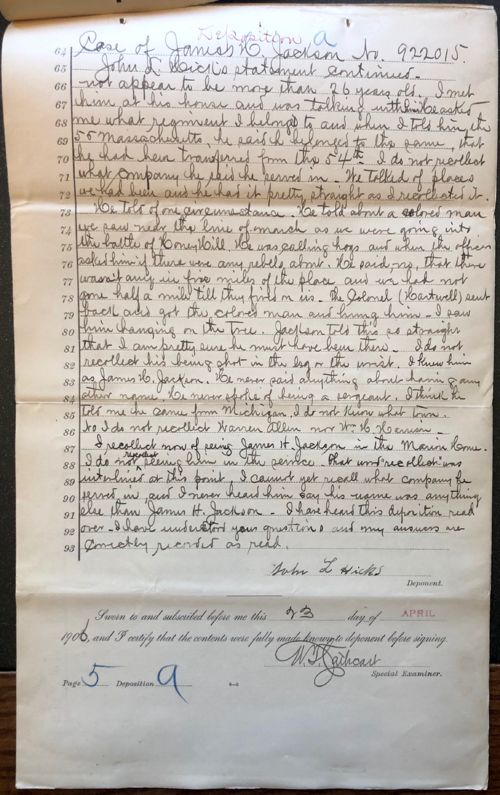 Deposition A
64 Case of James H. Jackson No. 922015.
65 John L. Hicks statement continued -
66 not appear to be more than 26 years old. I met
67 him at his house and was talking with him he asked
68 me what regiment I belonged to and when I told him, the
69 55 Massachusetts, he said he belonged to the same, that
70 he had been transferred from the 54th. I do not recollect
71 what company he said he served in. We talked of places
72 we had been and he had it pretty straight as I recollected it.
73 He told of one circumstance. He told about a colored man
74 we saw near the line of march as we were going into
75 the battle of Honey Hill. He was calling hogs and when the officer
76 asked him if there were any rebels about. He said, no, that there
77 wasn't any in five miles of the place and we had not
78 gone half a mile till they fired on us. The Colonel (Hartwell) sent
79 back and got the colored man and hung him - I saw
80 him hanging on the tree. Jackson told this so straight
81 that I am pretty sure he must have been there. I do not
82 recollect his being shot in the leg or the wrist. I knew him
83 as James H. Jackson. He never said anything about having any
84 other name. He never spoke of being a sergeant. I think he
85 told me he came from Michigan, I do not know what town.
86 No I do not recollect Warren Allen nor Wm. H.
87 I recollect now of seeing James H. Jackson in the Marion Home.
88 I do not recollect seeing him in the service. That word "recollect" was
89 interlined at this point. I cannot yet recall what company he
90 served in and I never heard him say his name was anything
91 else than James H. Jackson - I have heard this deposition read
92 over - I have understood your questions and my answers are
93 correctly recorded as read.
John L Hicks
Deponent.
Sworn to and subscribed before me this 23 day of APRIL
1906, and I certify that the contents were fully made known to deponent before signing.
W. T. Cathcart
Special Examiner.
Page 5 Deposition A